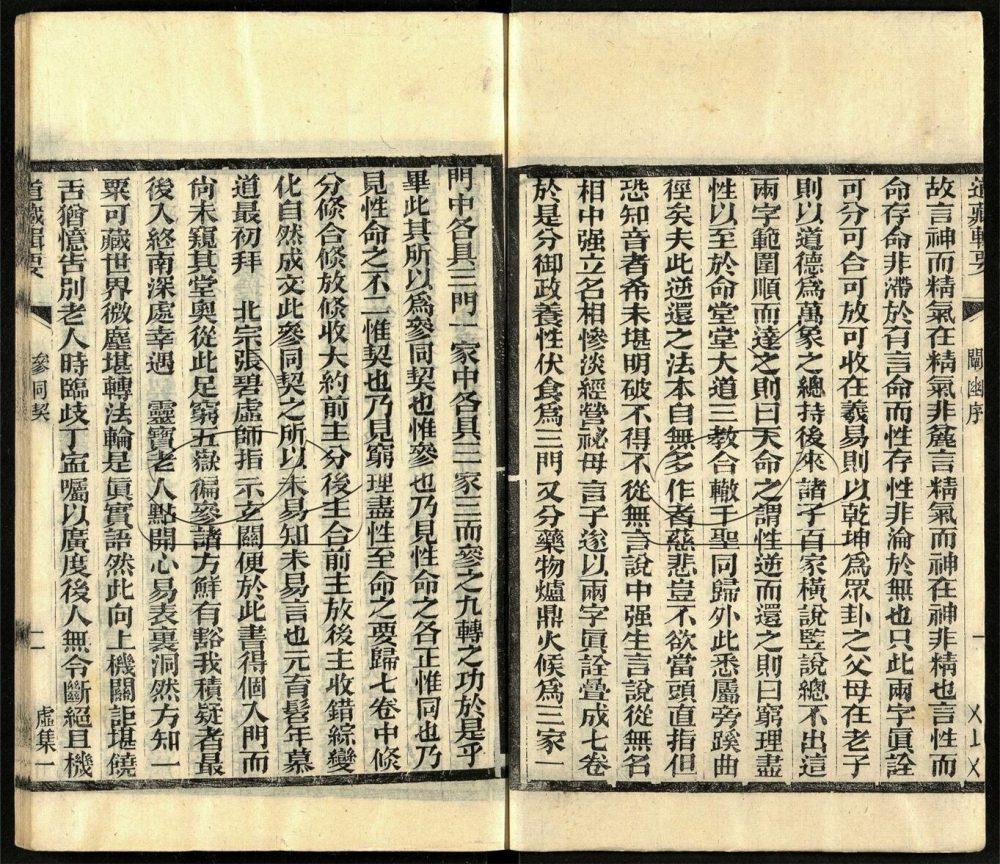 道藏輯要
闡幽序
一
故言神而精氣在精氣非麄言精氣而神在神非精也言性而
命存命非滯於有言命而性存性非淪於無也只此兩字眞詮
可分可合可放可收在羲易則以乾坤爲眾卦之父母在老子
則以道德爲萬象之總持後來諸子百家橫說竪說總不出這
兩字範圍順而達之則曰天命之謂性逆而還之則曰窮理盡
性以至於命堂堂大道三教合轍千聖同歸外此悉屬旁蹊曲
徑矣夫此逆還之法本自無多作者慈悲豈不欲當頭直指但
恐知音者希未堪明破不得不從無言說中强生言說從無名
相中强立名相慘淡經營祕母言子遂以兩字眞詮疊成七卷
於是分御政養性伏食爲三門又分藥物爐鼎火候爲三家一
門中各具三門一家中各具三家三而參之九轉之功於是乎
畢此其所以爲參同契也惟參也乃見性命之各正惟同也乃
見性命之不二惟契也乃見窮理盡性至命之要歸七卷中條
分條合條放條收大約前主分後主合前主放後主收錯綜變
化自然成文此參同契之所以未易知未易言也元育髫年慕
道最初拜 北宗張碧虛師指示玄關便於此書得個入門而
尙未窺其堂奧從此足窮五嶽徧參諸方鮮有豁我積疑者最
後入終南深處幸遇 靈寶老人點開心易表裏洞然方知一
粟可藏世界微塵堪轉法輪是眞實語然此向上機關詎堪饒
舌猶憶告別老人時臨歧丁寍囑以廣度後人無令斷絕且機
道藏輯要
參同契
二
虛集一